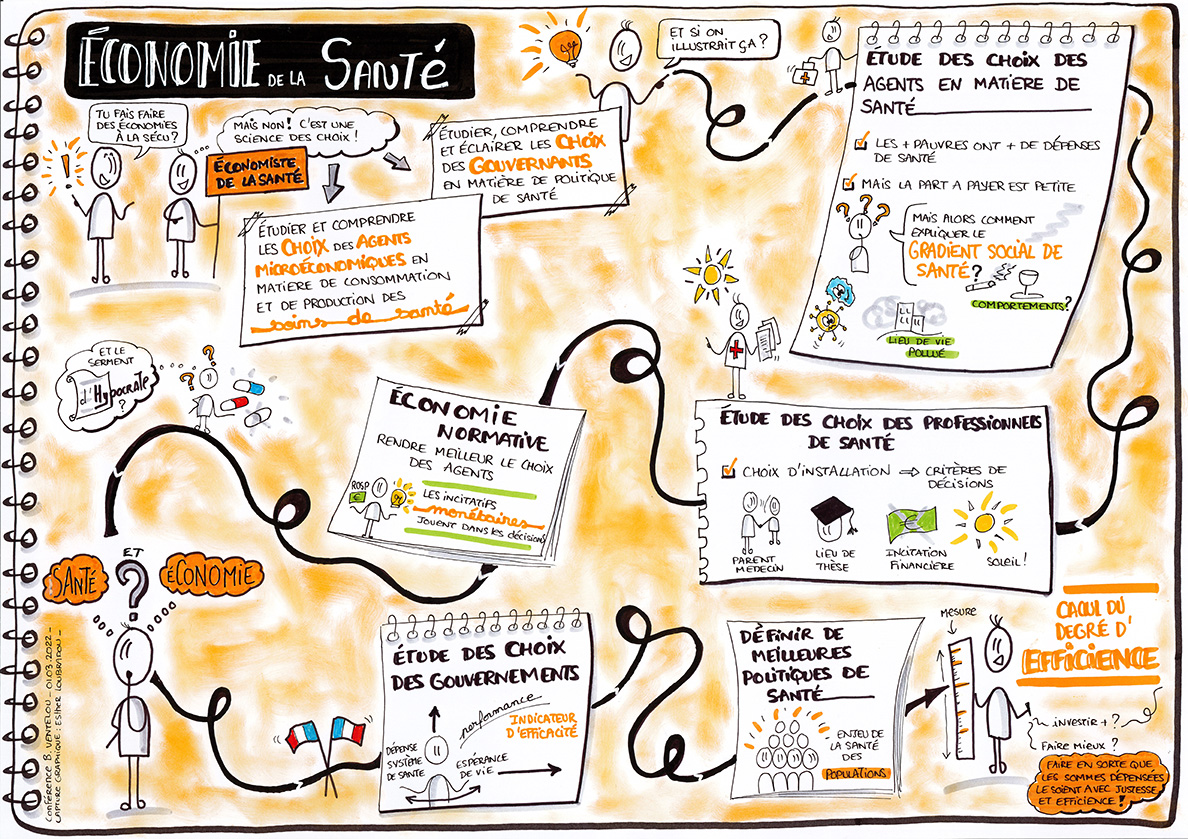 ÉCONOMIE DE LA SANTÉ
TU FAIS FAIRE
DES ÉCONOMIES
À LA SÉCU ?
MAIS NON ! C'EST UNE
SCIENCE DES CHOIX !
ÉCONOMISTE
DE LA SANTÉ
ÉTUDIER ET COMPRENDRE
LES CHOIX DES AGENTS
MICROÉCONOMIQUES EN
MATIÈRE DE CONSOMMATION
ET DE PRODUCTION DES
soins de santé
ÉTUDIER, COMPRENDRE
ET ÉCLAIRER LES CHOIX
DES GOUVERNANTS
EN MATIÈRE DE POLITIQUE
DE SANTÉ
ET SI ON
ILLUSTRAIT ÇA ?
ÉTUDE DES CHOIX DES
AGENTS EN MATIÈRE DE
SANTÉ
LES + PAUVRES ONT + DE DÉPENSES
DE SANTÉ
MAIS LA PART A PAYER EST PETITE
? ? ?
MAIS ALORS COMMENT
EXPLIQUER LE
GRADIENT SOCIAL DE
SANTÉ ?
COMPORTEMENTS ?
LIEU DE VIE
POLLUÉ
ÉTUDE DES CHOIX DES PROFESSIONNELS
DE SANTÉ
CHOIX D'INSTALLATION ⇒ CRITÈRES DE
DÉCISIONS
PARENT
MEDECIN
LIEU DE
THÈSE
€
INCITATION
FINANCIÈRE
SOLEIL !
ÉCONOMIE
NORMATIVE
RENDRE MEILLEUR LE CHOIX
DES AGENTS
ROSP
€
LES INCITATIFS
monétaires
JOUENT DANS LES DÉCISIONS
ET LE
SERMENT
d'Hypocrate
?
? ?
SANTÉ
ET
ÉCONOMIE
?
ÉTUDE DES CHOIX
DES GOUVERNEMENTS
performance
INDICATEUR
D'EFFICACITÉ
DÉPENSE
SYSTÈME
DE SANTÉ
ESPÉRANCE
DE VIE
DÉFINIR DE
MEILLEURES
POLITIQUES DE
SANTÉ
ENJEU DE
LA SANTÉ
DES
POPULATIONS
MESURE
CACUL DU
DEGRÉ D'
EFFICIENCE
INVESTIR + ?
FAIRE MIEUX ?
FAIRE EN SORTE QUE
LES SOMMES DÉPENSÉES
LE SOIENT AVEC JUSTESSE
ET EFFICIENCE !
CONFÉRENCE B. VENTELOU _ 01.03.2022 _
CAPTURE GRAPHIQUE : ESTHER LOUBRADOU _